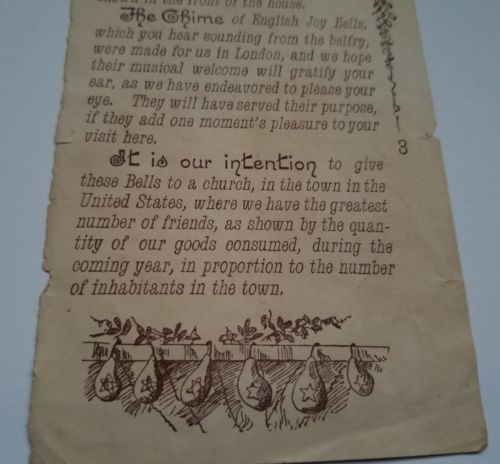 shown in the front of the house.
The Chime of English Joy Bells,
which you hear sounding from the belfry,
were made for us in London, and we hope
their musical welcome will gratify your
ear, as we have endeavored to please your
eye. They will have served their purpose,
if they add one moment's pleasure to your
visit here.
It is our intention to give
these Bells to a church, in the town in the
United States, where we have the greatest
number of friends, as shown by the quan-
tity of our goods consumed, during the
coming year, in proportion to the number
of inhabitants in the town.
3